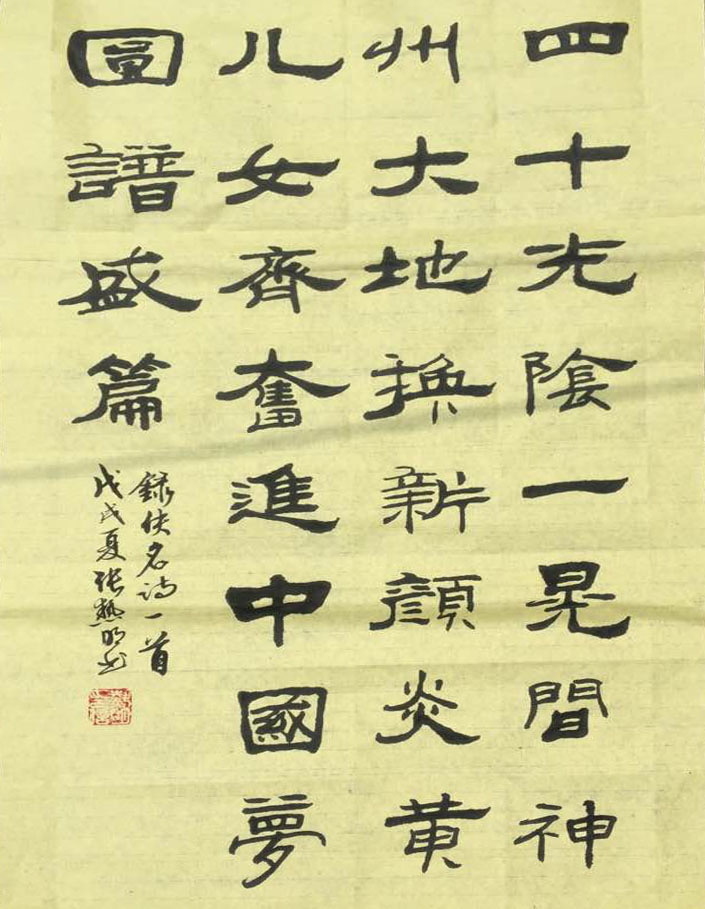 四十光陰一晃間神
州大地換新顏炎黃
儿女齊奮進中國夢
圖譜盛篇
錄佚名詩一首
戊戌夏張熱明书